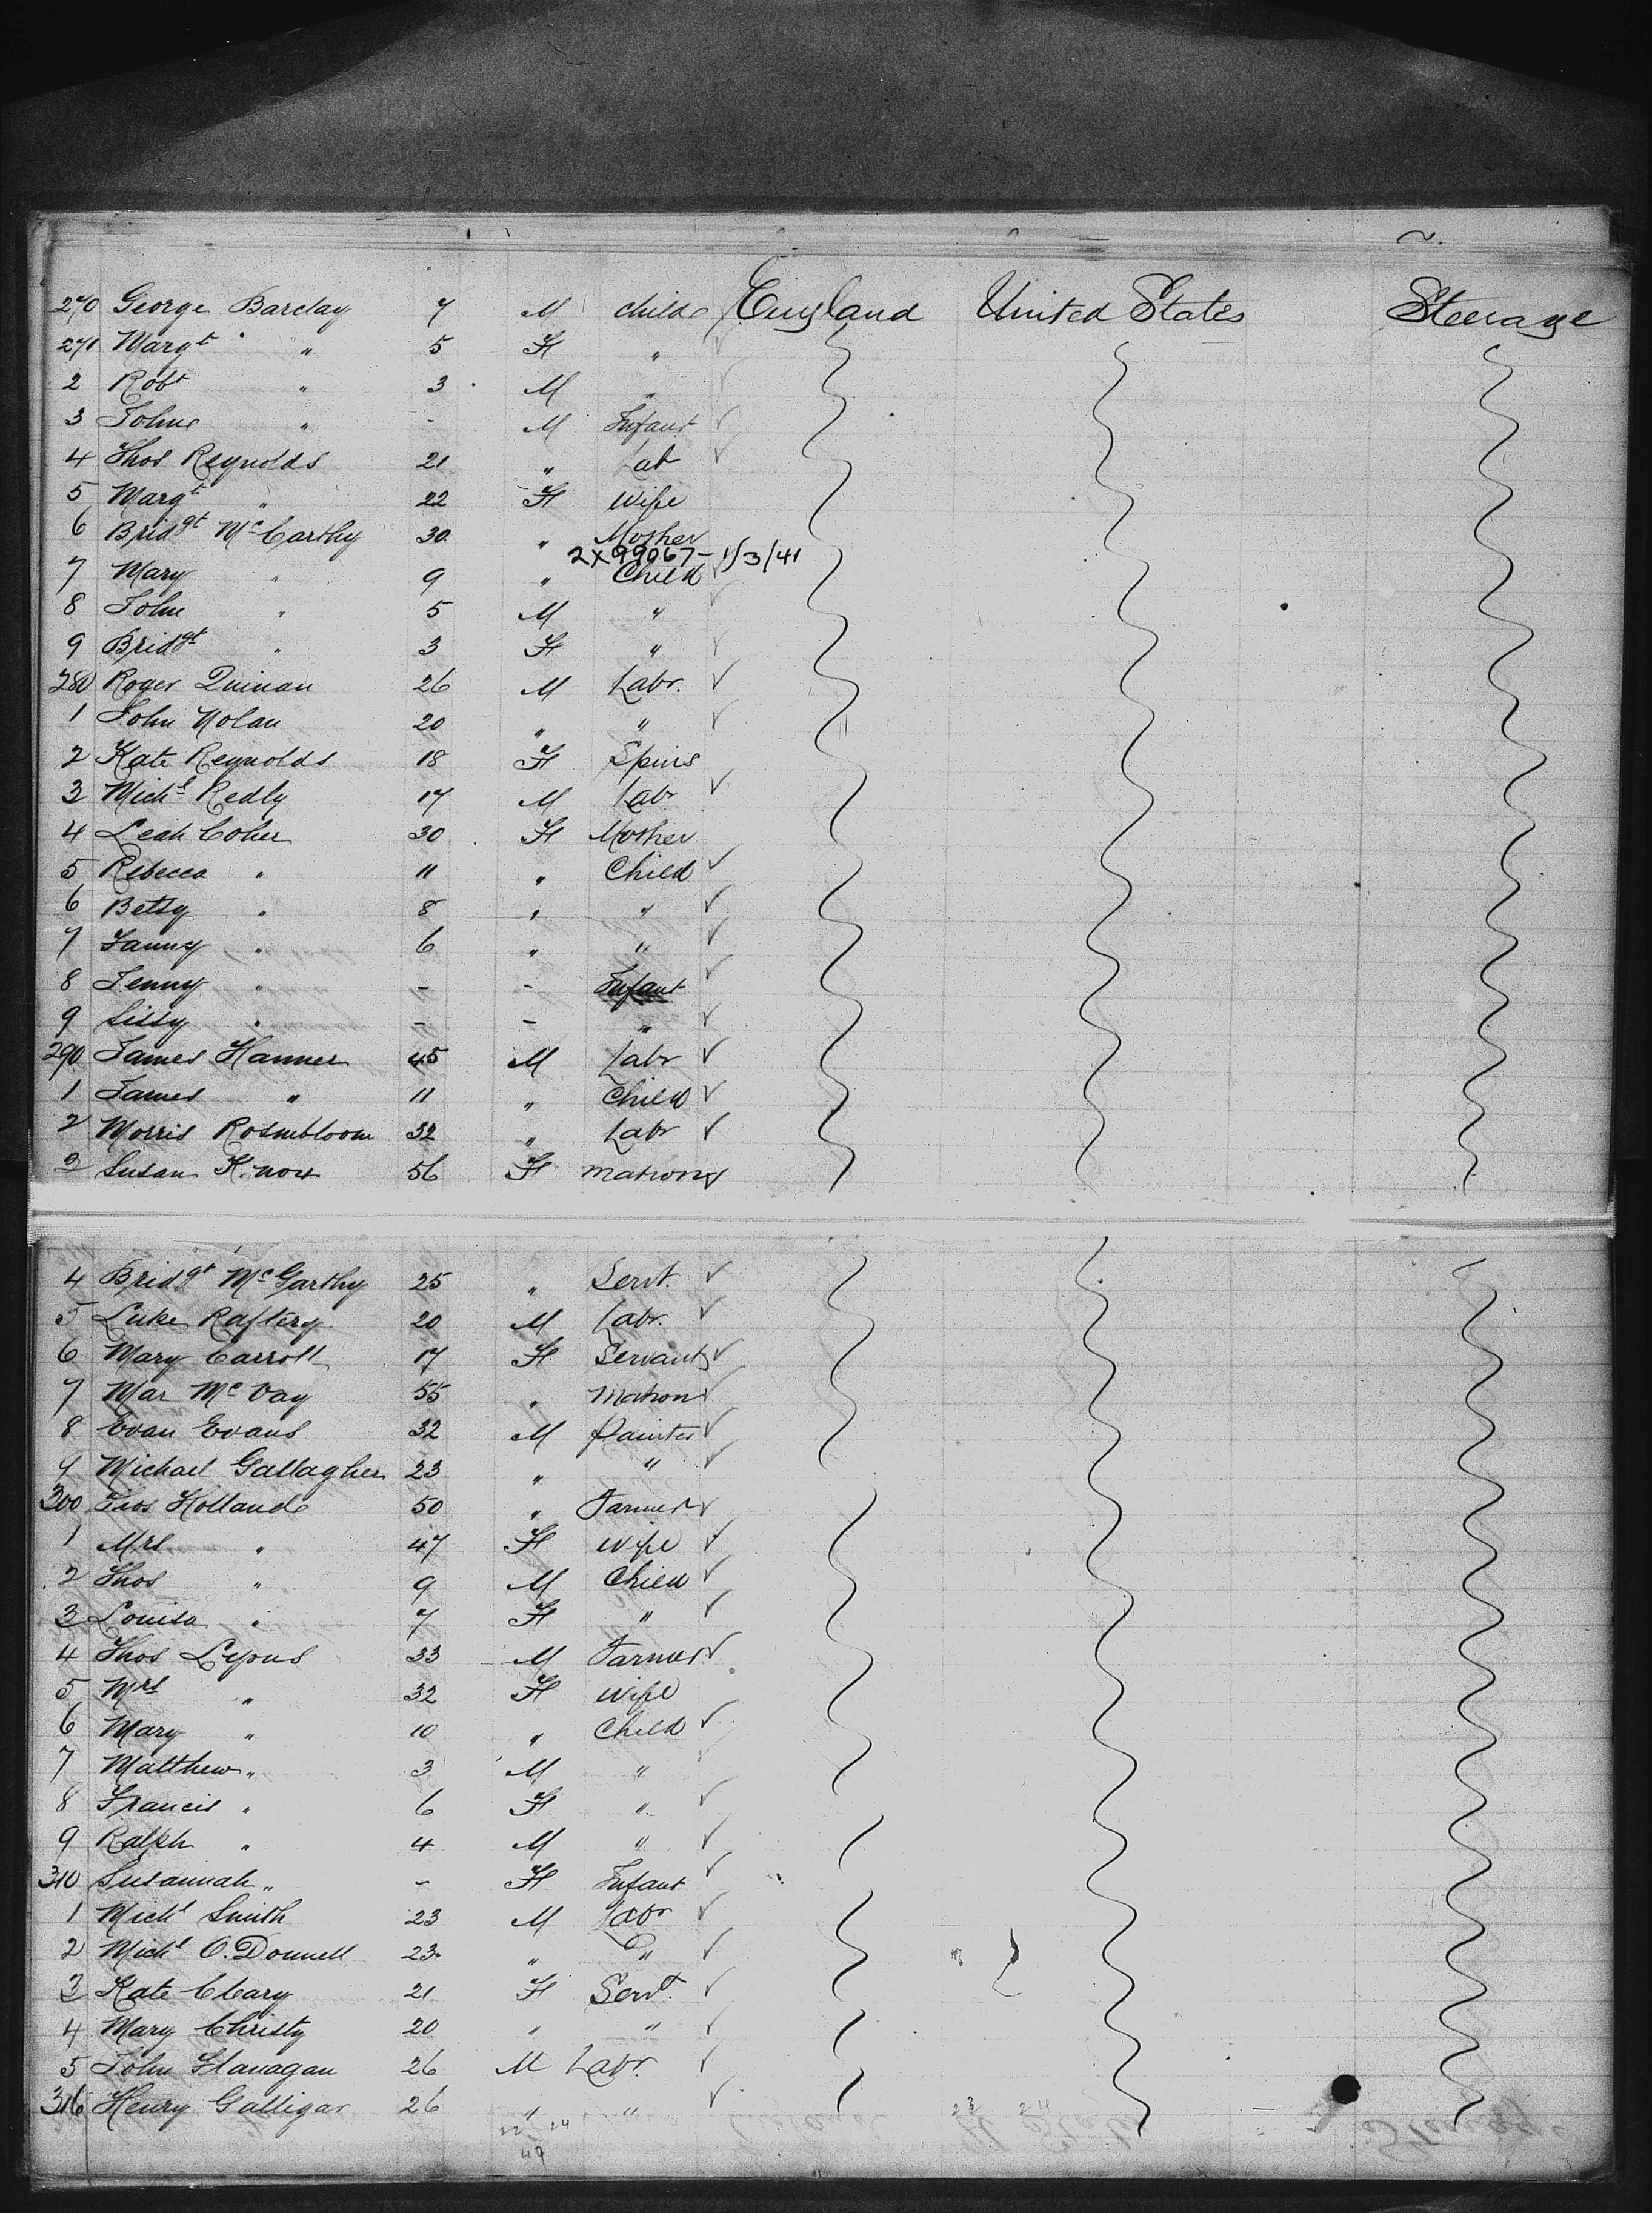 270 George Barclay 7 M child England United States Steerage
271 Margt " 5 F "
2 Robt " 3 M "
3 John " - M Infant
4 Thos Reynolds 21 " Lab
5 Margt " 22 F Wife
6 Bridgt McCarthy 30 " Mother
2X99067-1/3/41
7 Mary " 9 " Child
8 John " 5 M "
9 Bridgt " 3 F "
280 Roger Quinan 26 M Labr.
1 John Nolan 20 " "
2 Kate Reynolds 18 F Spins
3 Michl Redly 17 M Labr
4 Leah Coher 30 F Mother
5 Rebecca " 11 " Child
6 Betsy " 8 " "
7 Fanny " 6 " "
8 Jenny " - - Infant
9 Sissy " - - "
290 James Hanner 45 M Labr
1 James " 11 " Child
2 Morris Rosmbloom 32 " Labr
3 Susan Knox 56 F matron
4 Bridgt McGarthy 25 " Servt.
5 Luke Raftery 20 M Labr.
6 Mary Carroll 17 F Servant
7 Mar McVay 55 " Matron
8 Evan Evans 32 M Painter
9 Michael Gallagher 23 " "
300 Holland 50 " Farmer
1 Mrs " 47 F Wife
2 Thos " 9 M Child
3 Louisa " 7 F "
4 Thos Lyons 33 M Farmer
5 Mrs " 32 F Wife
6 Mary " 10 " Child
7 Matthew " 3 M "
8 Francis " 6 F "
9 Ralph " 4 M "
310 Susannah " - F Infant
1 Michl Smith 23 M Labr
2 Michl O.Donnell 23 " "
3 Kate Cleary 21 F Servt.
4 Mary Christy 20 " "
5 John Flanagan 26 M Labr.
316 Henry Galligar 26 " "
23 24
22 24
47